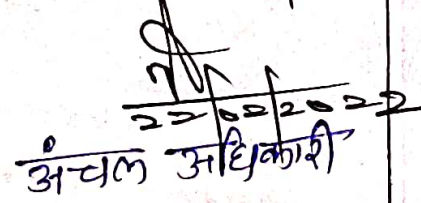 22/02/2022
अंचल अधिकारी